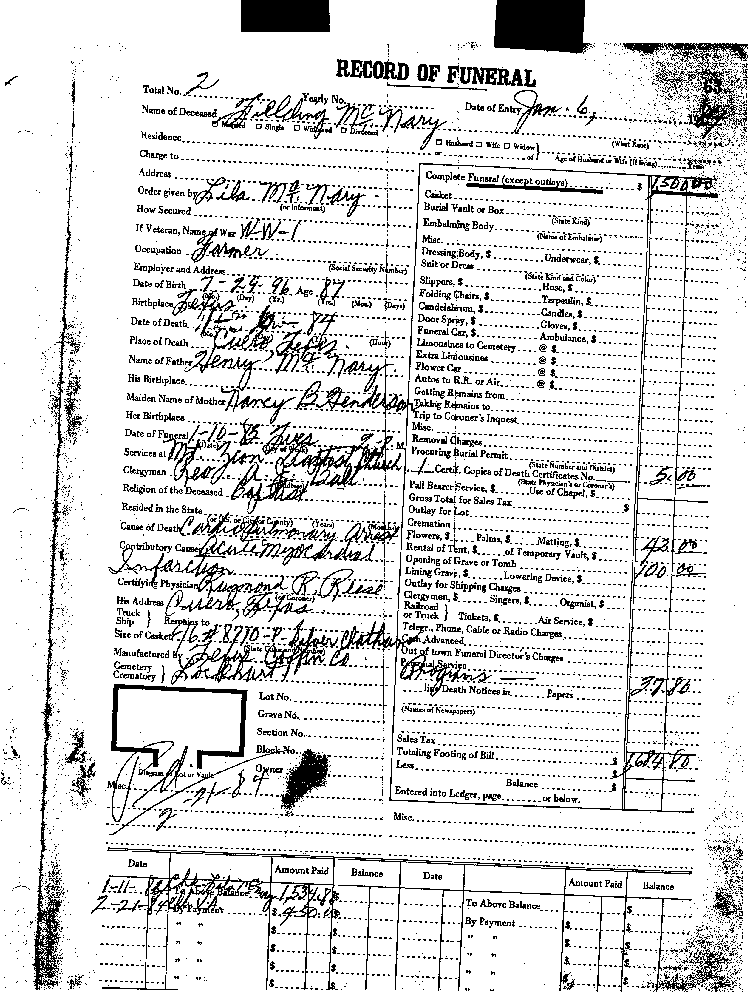 RECORD OF FUNERAL
Total No. 2 Yearly No.
Date of Entry Jan. 6,
Name of Deceased Fielding McNary
Married Single Widowed Divorced
Husband Wife Widow of
(What Race)
Age of Husband or Wife (if living) Years
Residence
Charge to
Address
Order given by Lila McNary
(or Informant)
How Secured
If Veteran, Name of War WW-1
Occupation Farmer
Employer and Address (Social Security Number)
Date of Birth 7-29-96 Age 87
(Mo.) (Day) (Yr.) (Yrs.) (Mos.) (Days)
Birthplace Texas
Date of Death
Place of Death Cuero Texas
Name of Father Henry McNary
His Birthplace
Maiden Name of Mother Nancy B. Henderson
Her Birthplace
Date of Funeral 1-10- Tues
Services at Mt. Zion Baptist Church
Clergyman Rev. A. E.
Religion of the Deceased Baptist
Resided in the State
(or U.S. or City or County) (Years) (Months)
Cause of Death Cardiopulmonary Arrest
Contributory Cause Acute Myocardial
Infarction
Certifying Physician Raymond R. Reese
(or Coroner)
His Address Cuero, Texas
Truck Ship } Remains to
Size of Casket 16 ga 8710-P Silver Cloth
Manufactured By Texas Coffin Co
Cemetery Crematory } Lockhart
Lot No.
Grave No.
Section No.
Block No.
Owner
Diagram of Lot or Vault
Misc.
Pd 2-21-84
Complete Funeral (except outlays) $ 1,500.00
Casket
Burial Vault or Box
(State Kind)
Embalming Body
(Name of Embalmer)
Misc.
Dressing Body, $ Underwear, $
Suit or Dress
(State Kind and Color)
Slippers, $ Hose, $
Folding Chairs, $ Tarpaulin, $
Candelabrum, $ Candles, $
Door Spray, $ Gloves, $
Funeral Car, $ Ambulance, $
Limousines to Cemetery @ $
Extra Limousines @ $
Flower Car @ $
Autos to R.R. or Air @ $
Getting Remains from
Taking Remains to
Trip to Coroner's Inquest
Misc.
Removal Charges
Procuring Burial Permit
(State Number and District)
1 Certif. Copies of Death Certificates No. 5.00
(State Physician's or Coroner's)
Pall Bearer Service, $ Use of Chapel, $
Gross Total for Sales Tax $
Outlay for Lot
Cremation
Flowers, $ Palms, $ Matting, $ 43.00
Rental of Tent, $ of Temporary Vault, $
Opening of Grave or Tomb 100.00
Lining Grave, $ Lowering Device, $
Outlay for Shipping Charges
Clergymen, $ Singers, $ Organist, $
Railroad or Truck } Tickets, $ Air Service, $
Telegr., Phone, Cable or Radio Charges
Cash Advanced
Out of town Funeral Director's Charges
Personal Service
Programs
Death Notices in Papers 37.80
(Names of Newspapers)
Sales Tax
Totaling Footing of Bill $ 1,684.80
Less $
Balance $
Entered into Ledger, page or below.
Misc.
Date Amount Paid Balance Date Amount Paid Balance
1-11-84 To Above Balance $ To Above Balance $
2-21-84 By Payment $ 450.00 By Payment $
" " $ " " $
" " $ " " $
" " $ " " $